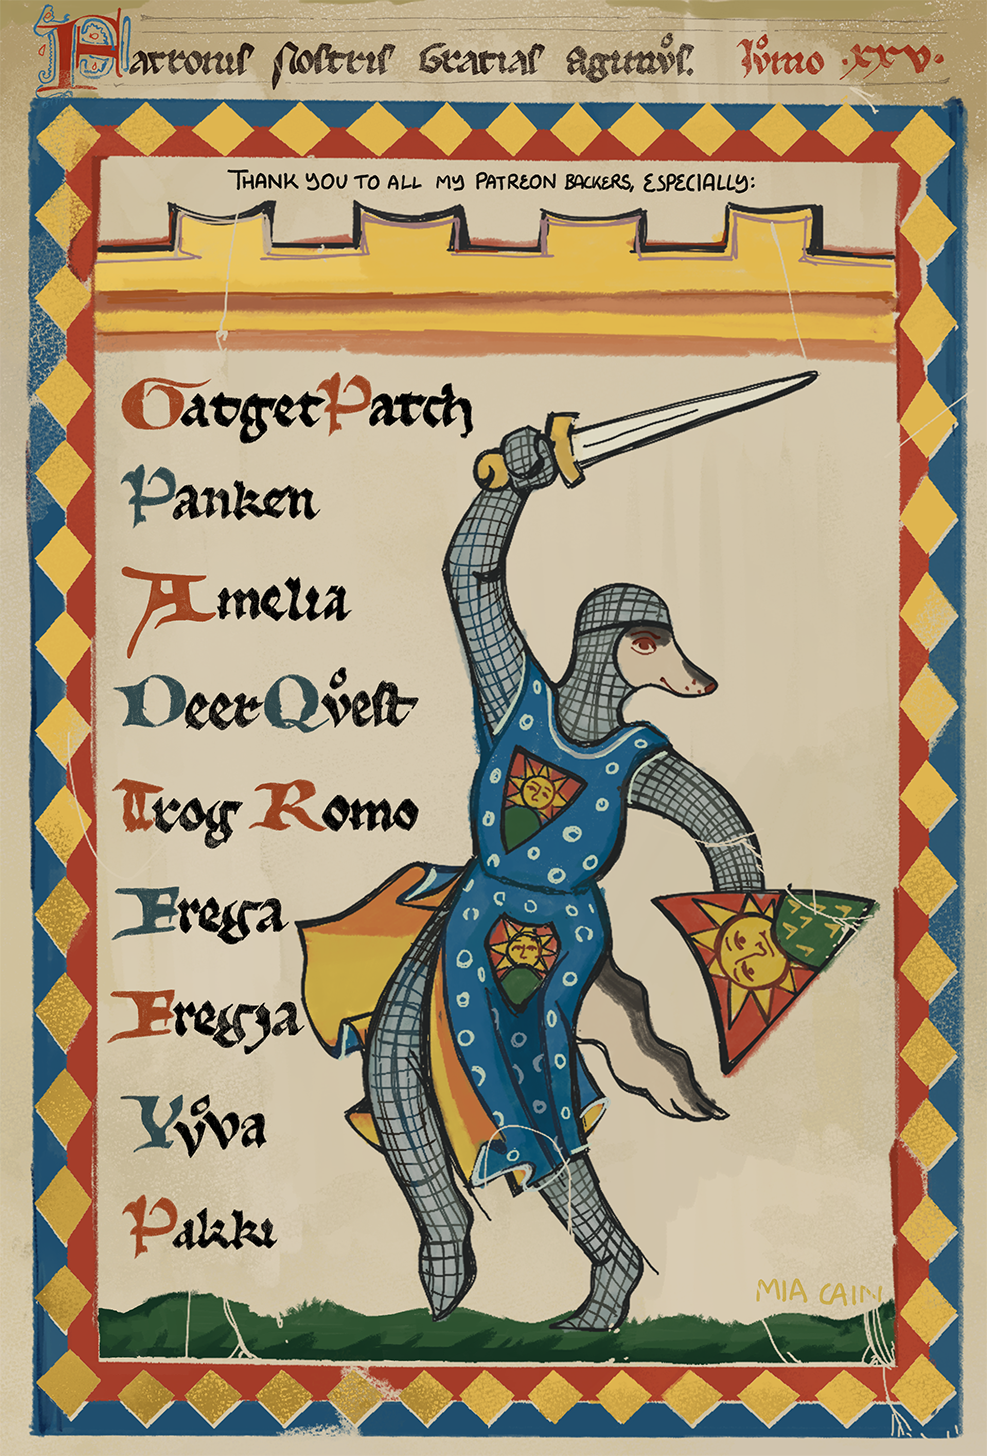 Patronis Nostris Gratias Agimůs. Iůnio ·xxv·
THANK YOU TO ALL MY PATREON BACKERS, ESPECIALLY:
GadgetPatch
Panken
Amelia
DeerQůest
Trog Romo
Freya
Freyja
Yůva
Pakki
MIA CAIN